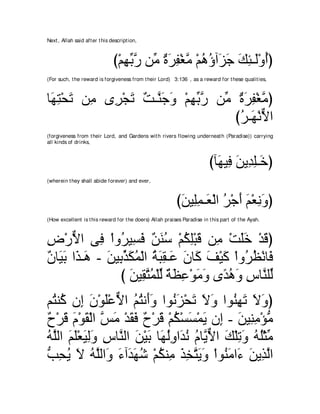 Next, Allah said after this description,
(أُوْلَـئِكَ جَزَآؤُهُمْ مَّغْفِرَةٌ مِّن رَّبِّهِمْ)
(For such, the reward is forgiveness from their Lord) 3:136 , as a reward for these qualities,
(مَّغْفِرَةٌ مِّن رَّبِّهِمْ وَجَنَّـتٌ تَجْرِى مِن تَحْتِهَا
الاٌّنْهَـرُ)
(forgiveness from their Lord, and Gardens with rivers flowing underneath (Paradise)) carrying
all kinds of drinks,
(خَـلِدِينَ فِيهَآ)
(wherein they shall abide forever) and ever,
(وَنِعْمَ أَجْرُ الْعَـمِلِينَ)
(How excellent is this reward for the doers) Allah praises Paradise in this part of the Ayah.
(قَدْ خَلَتْ مِن قَبْلِكُمْ سُنَنٌ فَسِيرُواْ فِى الاٌّرْضِ
فَانْظُرُواْ كَيْفَ كَانَ عَـقِبَةُ الْمُكَذِّبِينَ - هَـذَا بَيَانٌ
لِّلنَّاسِ وَهُدًى وَمَوْعِظَةٌ لِّلْمُتَّقِينَ )
(وَلاَ تَهِنُوا وَلاَ تَحْزَنُوا وَأَنتُمُ الاٌّعْلَوْنَ إِن كُنتُم
مُّؤْمِنِينَ - إِن يَمْسَسْكُمْ قَرْحٌ فَقَدْ مَسَّ الْقَوْمَ قَرْحٌ
مِّثْلُهُ وَتِلْكَ الاٌّيَّامُ نُدَاوِلُهَا بَيْنَ النَّاسِ وَلِيَعْلَمَ اللَّهُ
الَّذِينَ ءَامَنُواْ وَيَتَّخِذَ مِنكُمْ شُهَدَآءَ وَاللَّهُ لاَ يُحِبُّ